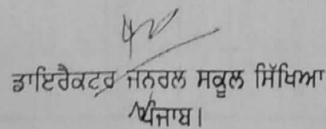 ਡਾਇਰੈਕਟਰ ਜਨਰਲ ਸਕੂਲ ਸਿੱਖਿਆ
ਪੰਜਾਬ।